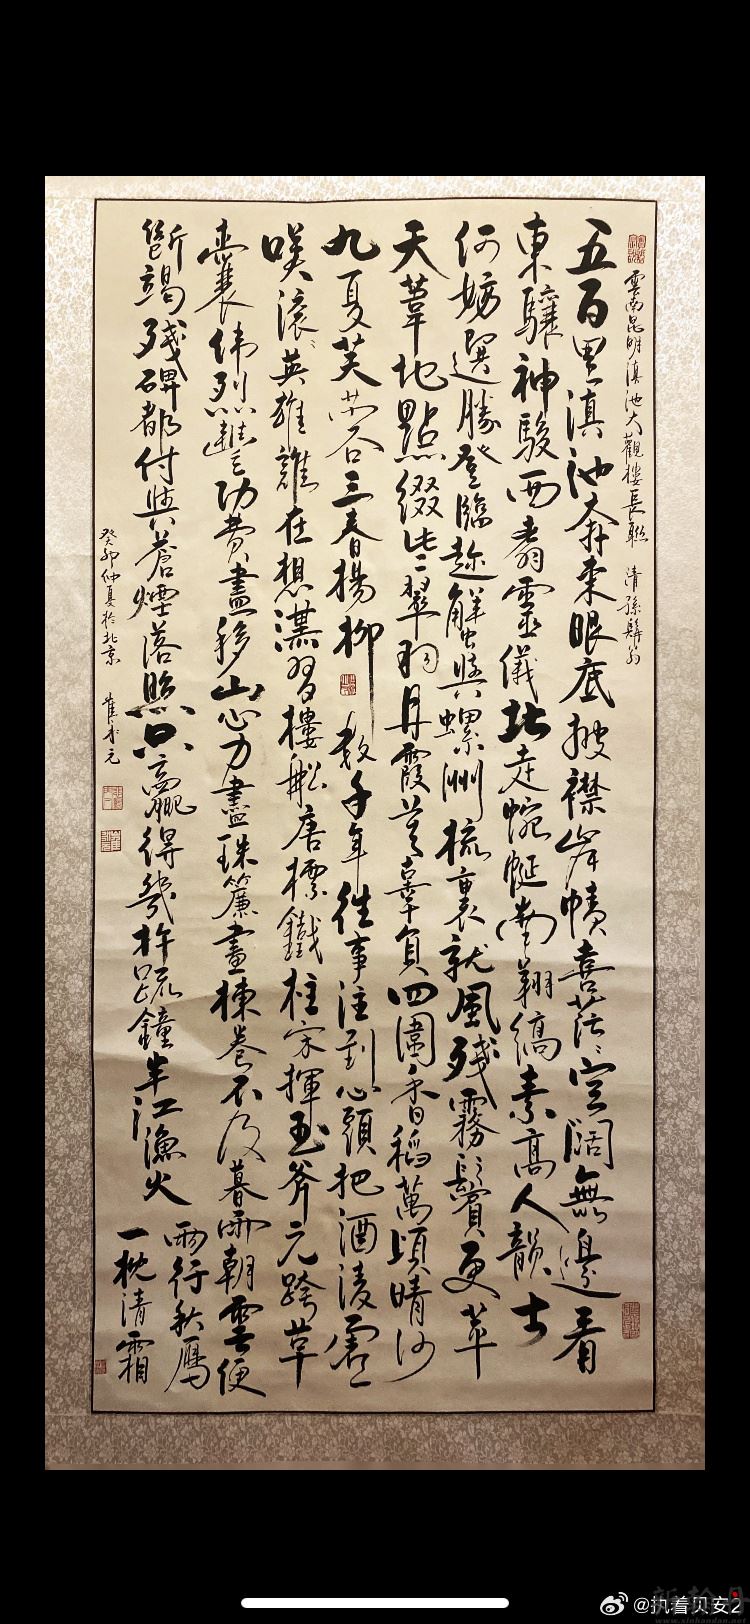 雲南昆明滇池大觀樓長聯 清孫髯翁
五百里滇池奔來眼底披襟岸幘喜茫々空闊無邊看
東驤神駿西翥靈儀北走蜿蜒南翔縞素高人韻士
何妨選勝登臨趁蟹嶼螺洲梳裹就風殘霧鬢更苹
天葦地點綴些翠羽丹霞莫辜負四圍香稻萬頃晴沙
九夏芙蓉三春楊柳 數千年往事注到心頭把酒凌虛
嘆滾々英雄誰在想漢習樓船唐標鐵柱宋揮玉斧元跨革
囊偉烈豐功費盡移山心力盡珠簾畫棟卷不及暮雨朝雲便
斷碣殘碑都付與蒼煙落照只贏得幾杵疏鐘半江漁火
兩行秋雁
一枕清霜
癸卯仲夏於北京
@执着贝安2
www.xinhandan.net